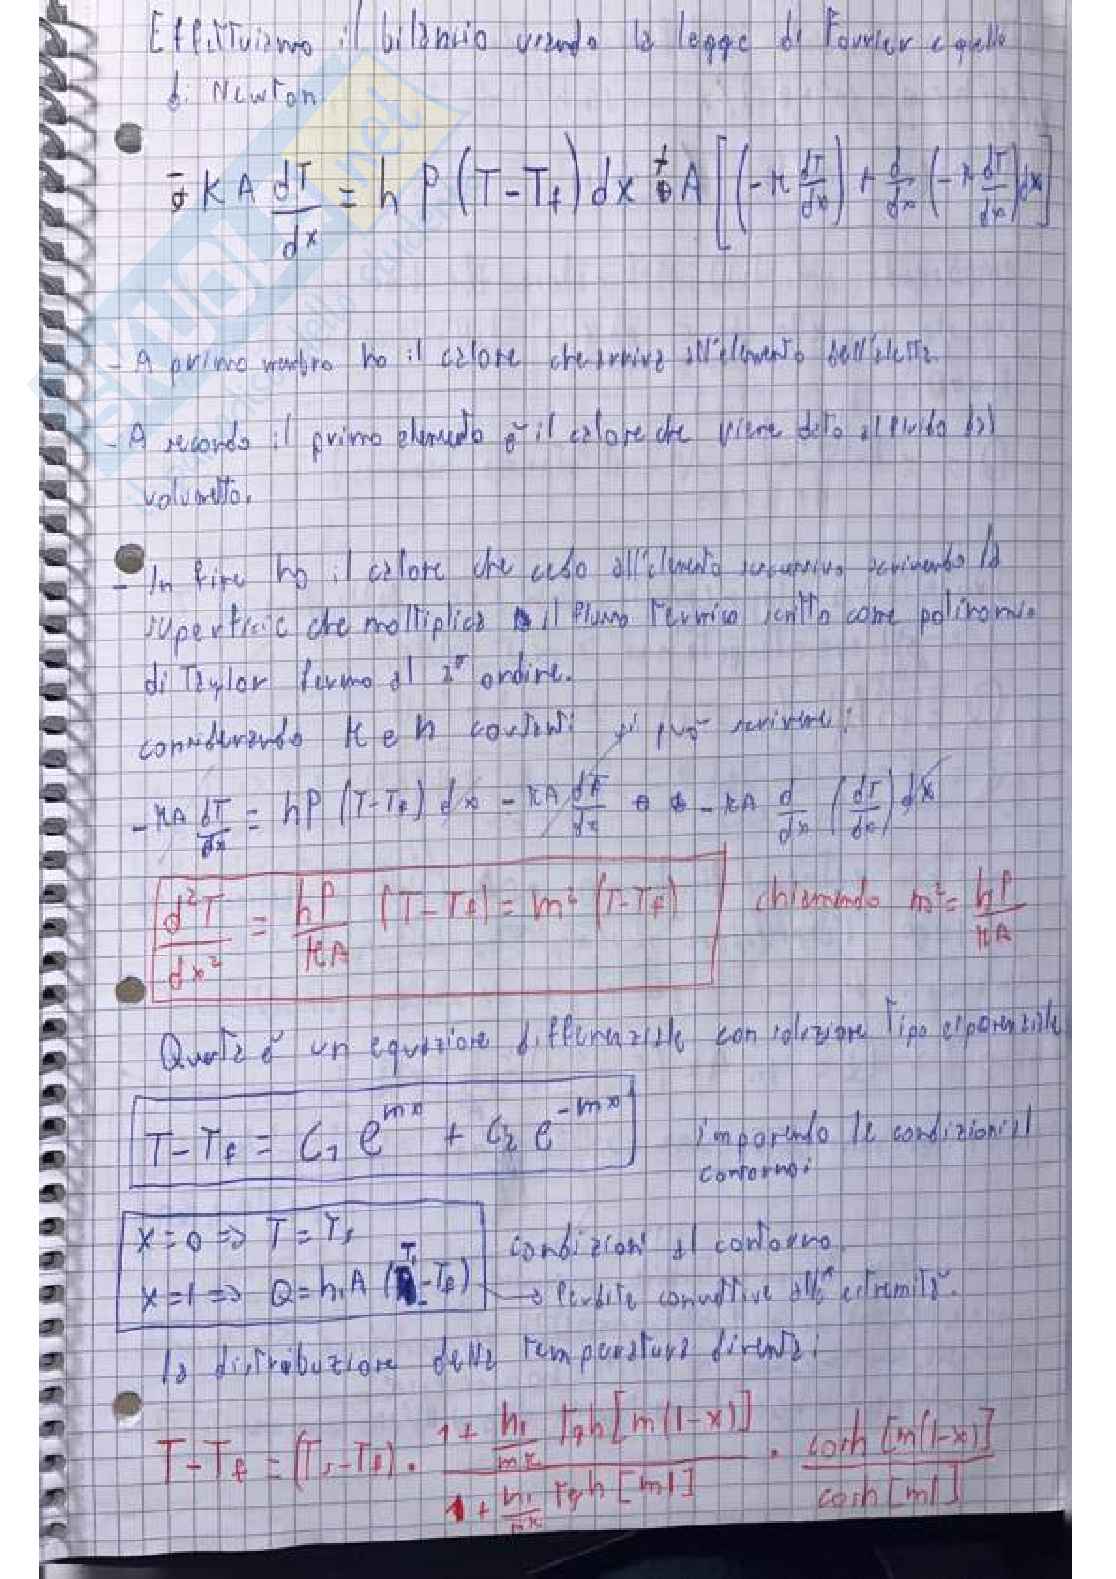 Effettuiamo il bilancio usando la legge di Fourier e quella
di Newton
- K A dT/dx = h P (T-Tf) dx + A [(-k dT/dx) + d/dx (-k dT/dx) dx]
- A primo membro ho il calore che arriva all'elemento dell'aletta.
- A secondo il primo elemento è il calore che viene dato al fluido dal
volumetto.
- In fine ho il calore che cedo all'elemento successivo scrivendo la
superficie che moltiplica il flusso termico scritto come polinomio
di Taylor fermo al 2° ordine.
considerando k e h costanti si può scrivere:
-kA dT/dx = hP (T-Tf) dx - kA dT/dx - kA d/dx (dT/dx) dx
d²T/dx² = hP/kA (T-Tf) = m² (T-Tf) chiamando m² = hP/kA
Questa è un equazione differenziale con soluzione tipo esponenziale
T-Tf = C1 e^mx + C2 e^-mx imponendo le condizioni al
contorno:
x=0 => T=T1 condizioni al contorno
x=l => Q=h1A (T-Tf) → Perdite convettive all'estremità.
la distribuzione della temperatura diventa:
T-Tf = (T1-Tf) · (1 + h1/mk tgh[m(l-x)]) / (1 + h1/mk tgh[ml]) · cosh[m(l-x)] / cosh[ml]